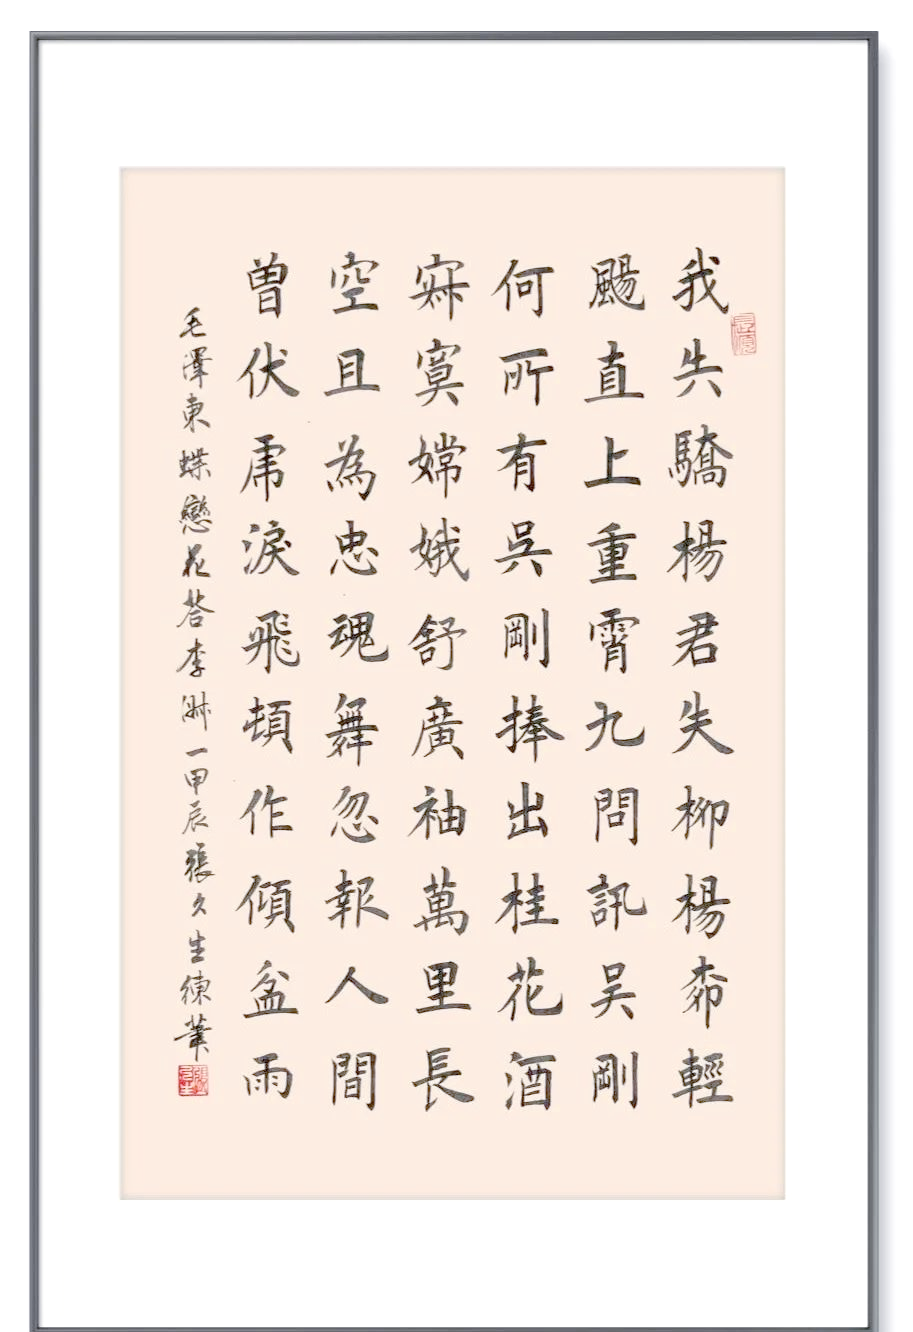 我失驕楊君失柳楊柳輕
颺直上重霄九問訊吴剛
何所有吳剛捧出桂花酒
寂寞嫦娥舒廣袖萬里長
空且為忠魂舞忽報人間
曾伏虎淚飛頓作傾盆雨
毛澤東蝶戀花荅李淑一甲辰張久生練筆